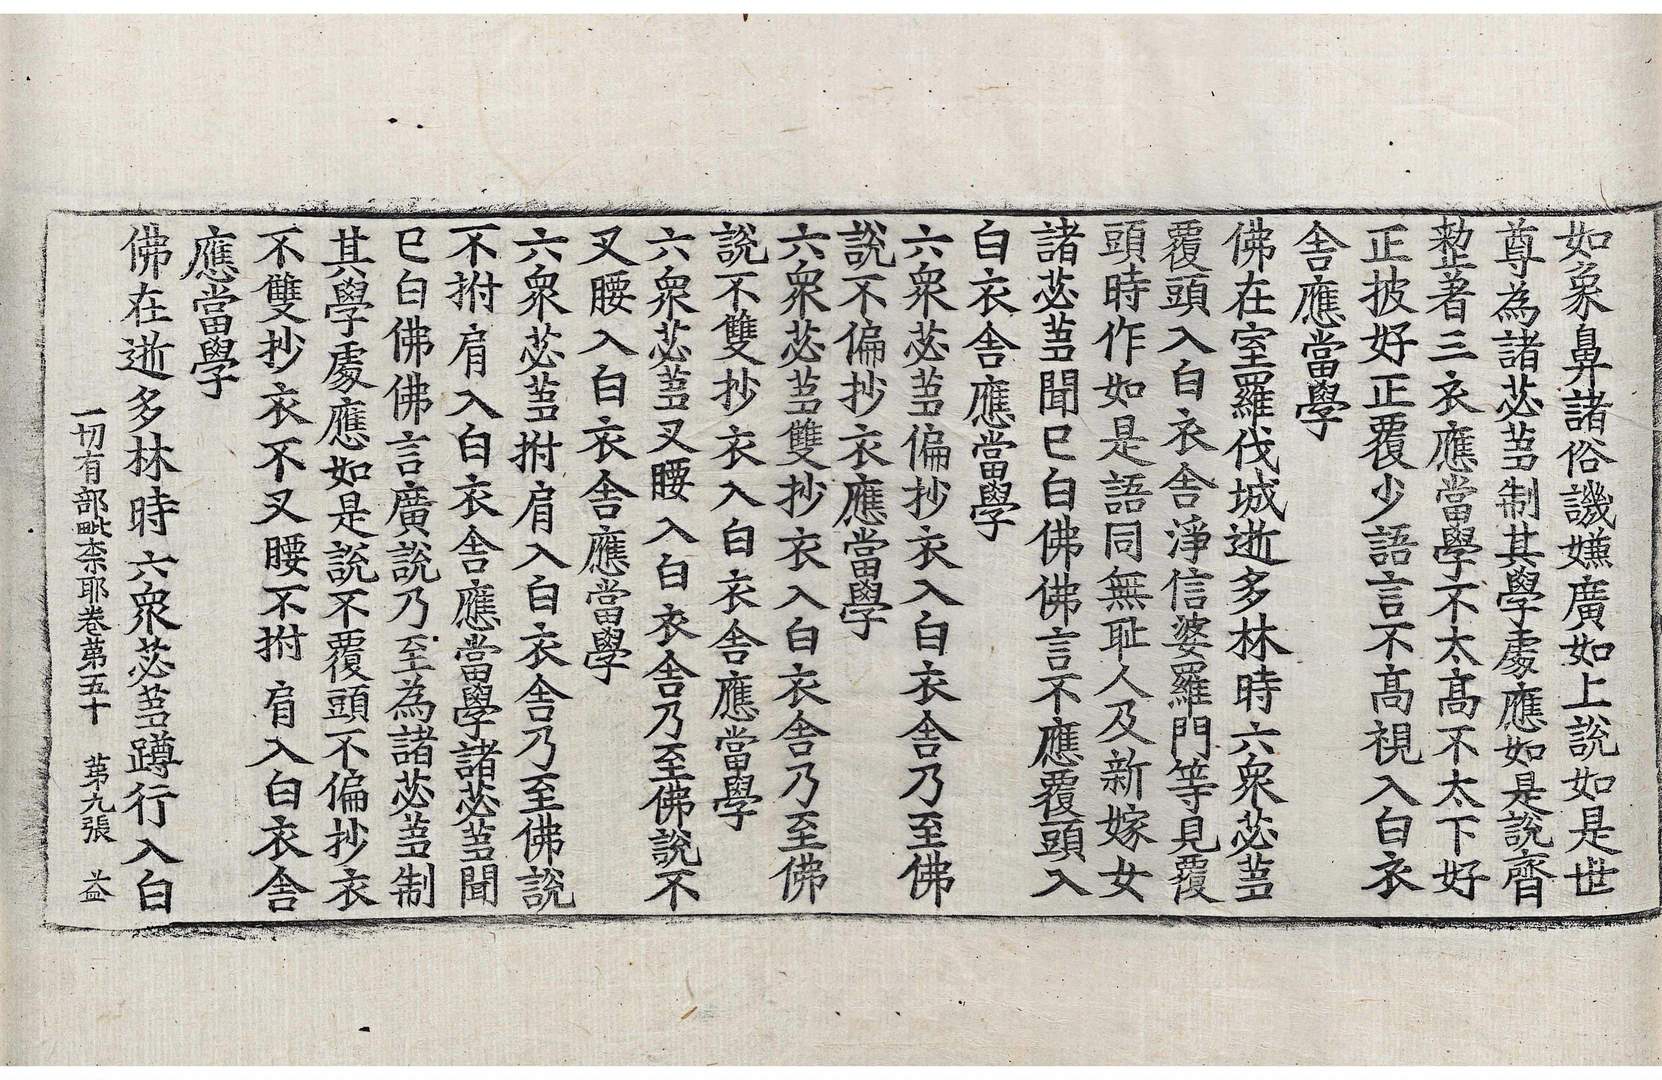 如象鼻諸俗譏嫌廣如上說如是世
尊為諸苾蒭制其學處應如是說齊
整著三衣應當學不太高不太下好
正披好正覆少語言不高視入白衣
舍應當學
佛在室羅伐城逝多林時六衆苾蒭
覆頭入白衣舍淨信婆羅門等見覆
頭時作如是語同無恥人及新嫁女
諸苾蒭聞已白佛佛言不應覆頭入
白衣舍應當學
六衆苾蒭偏抄衣入白衣舍乃至佛
說不偏抄衣應當學
六衆苾蒭雙抄衣入白衣舍乃至佛
說不雙抄衣入白衣舍應當學
六衆苾蒭叉腰入白衣舍乃至佛說不
叉腰入白衣舍應當學
六衆苾蒭拊肩入白衣舍乃至佛說
不拊肩入白衣舍應當學諸苾蒭聞
已白佛佛言廣說乃至為諸苾蒭制
其學處應如是說不覆頭不偏抄衣
不雙抄衣不叉腰不拊肩入白衣舍
應當學
佛在逝多林時六衆苾蒭蹲行入白
一切有部毗柰耶卷第五十 第九張 益